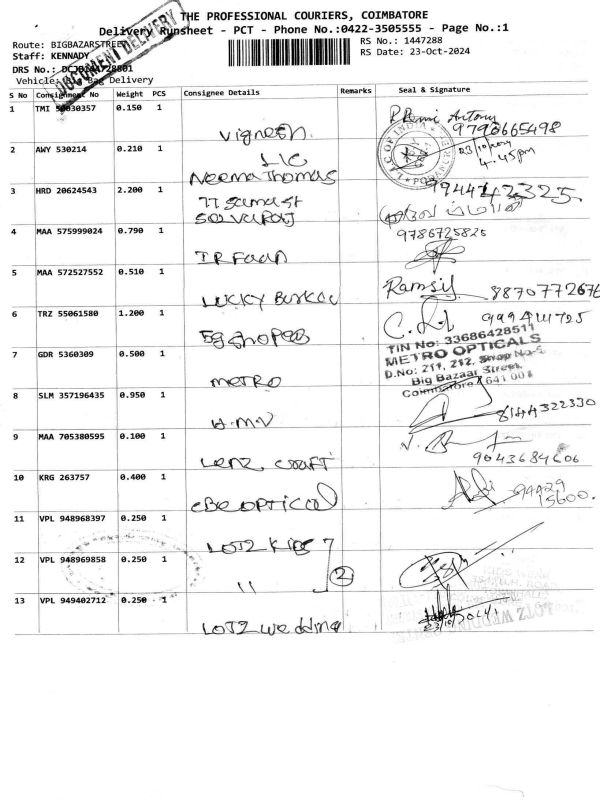 THE PROFESSIONAL COURIERS, COIMBATORE
Delivery Runsheet - PCT - Phone No.:0422-3505555 - Page No.:1
Route: BIGBAZARSTREET
RS No.: 1447288
Staff: KENNADY
RS Date: 23-Oct-2024
DOCUMENT DELIVERY
DRS No.:
Vehicle: Big Bag Delivery
S No Consignment No Weight PCS Consignee Details Remarks Seal & Signature
1 TMI 0.150 1 Vignesh
9790665498
2 AWY 530214 0.210 1 LIC
23/10/2024
4.45pm
Neema Thomas
3 HRD 20624543 2.200 1 77 Samast
Selvaraj
9944742325
4 MAA 575999024 0.790 1 Irfaan
9786725825
5 MAA 572527552 0.510 1 Lucky
Ramsiy 8870772676
6 TRZ 55061580 1.200 1 5g shopee
7 GDR 5360309 0.500 1 metro
TIN No: 33686428511
METRO OPTICALS
D.No: 211, 212, Shop No-6
Big Bazaar Street,
Coimbatore - 641 001
8 SLM 357196435 0.950 1 H.M.V
8144322330
9 MAA 705380595 0.100 1 Lenz craft
9043684606
10 KRG 263757 0.400 1 CBE optical
94429
15600.
11 VPL 948968397 0.250 1 LOTZ KIDS
12 VPL 948969858 0.250 1 11 2
13 VPL 949402712 0.250 1 LOTZ wedding
LOTZ WEDDING
23/10/2024